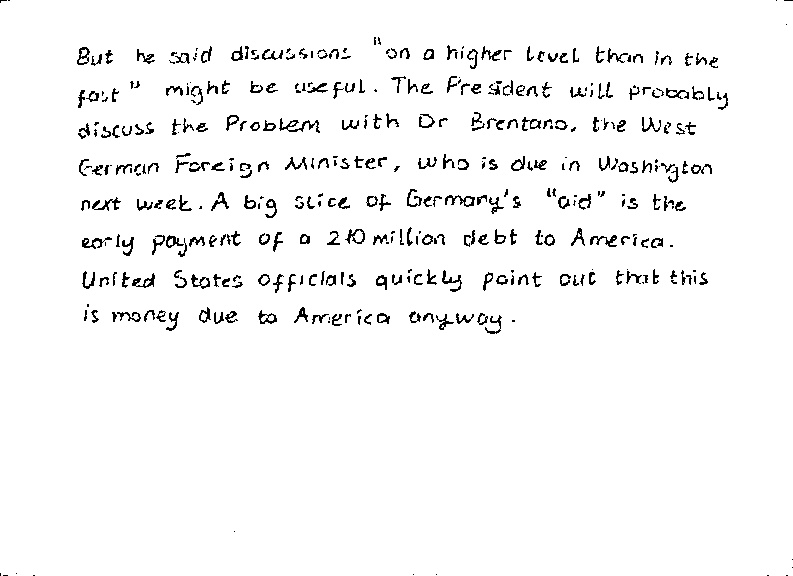 But he said discussions "on a higher level than in the
fast" might be useful. The President will probably
discuss the Problem with Dr Brentano, the West
German Foreign Minister, who is due in Washington
next week. A big slice of Germany's "aid" is the
early payment of a 210 million debt to America.
United States officials quickly point out that this
is money due to America anyway.